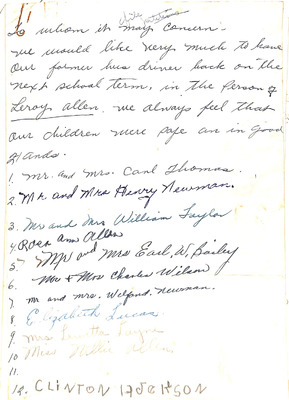 To whom it may concern:
we would like very much to have
our former bus driver back on the
next school term, in the person of
Leroy Allen. we always feel that
our children were safe an in good
Hands.
1. Mr. and Mrs. Carl Thomas.
2. Mr. and Mrs Henry Newman.
3. Mr and Mrs William Taylor
4. Rosa Ann Allen
5. Mr and Mrs Earl, W. Bailey
6. Mr & Mrs Charles Wilson
7. Mr and Mrs. Welford. Newman.
8. Elizabeth Lucas
9. Mrs Payne
10. Miss Willie
11.
12. CLINTON JACKSON